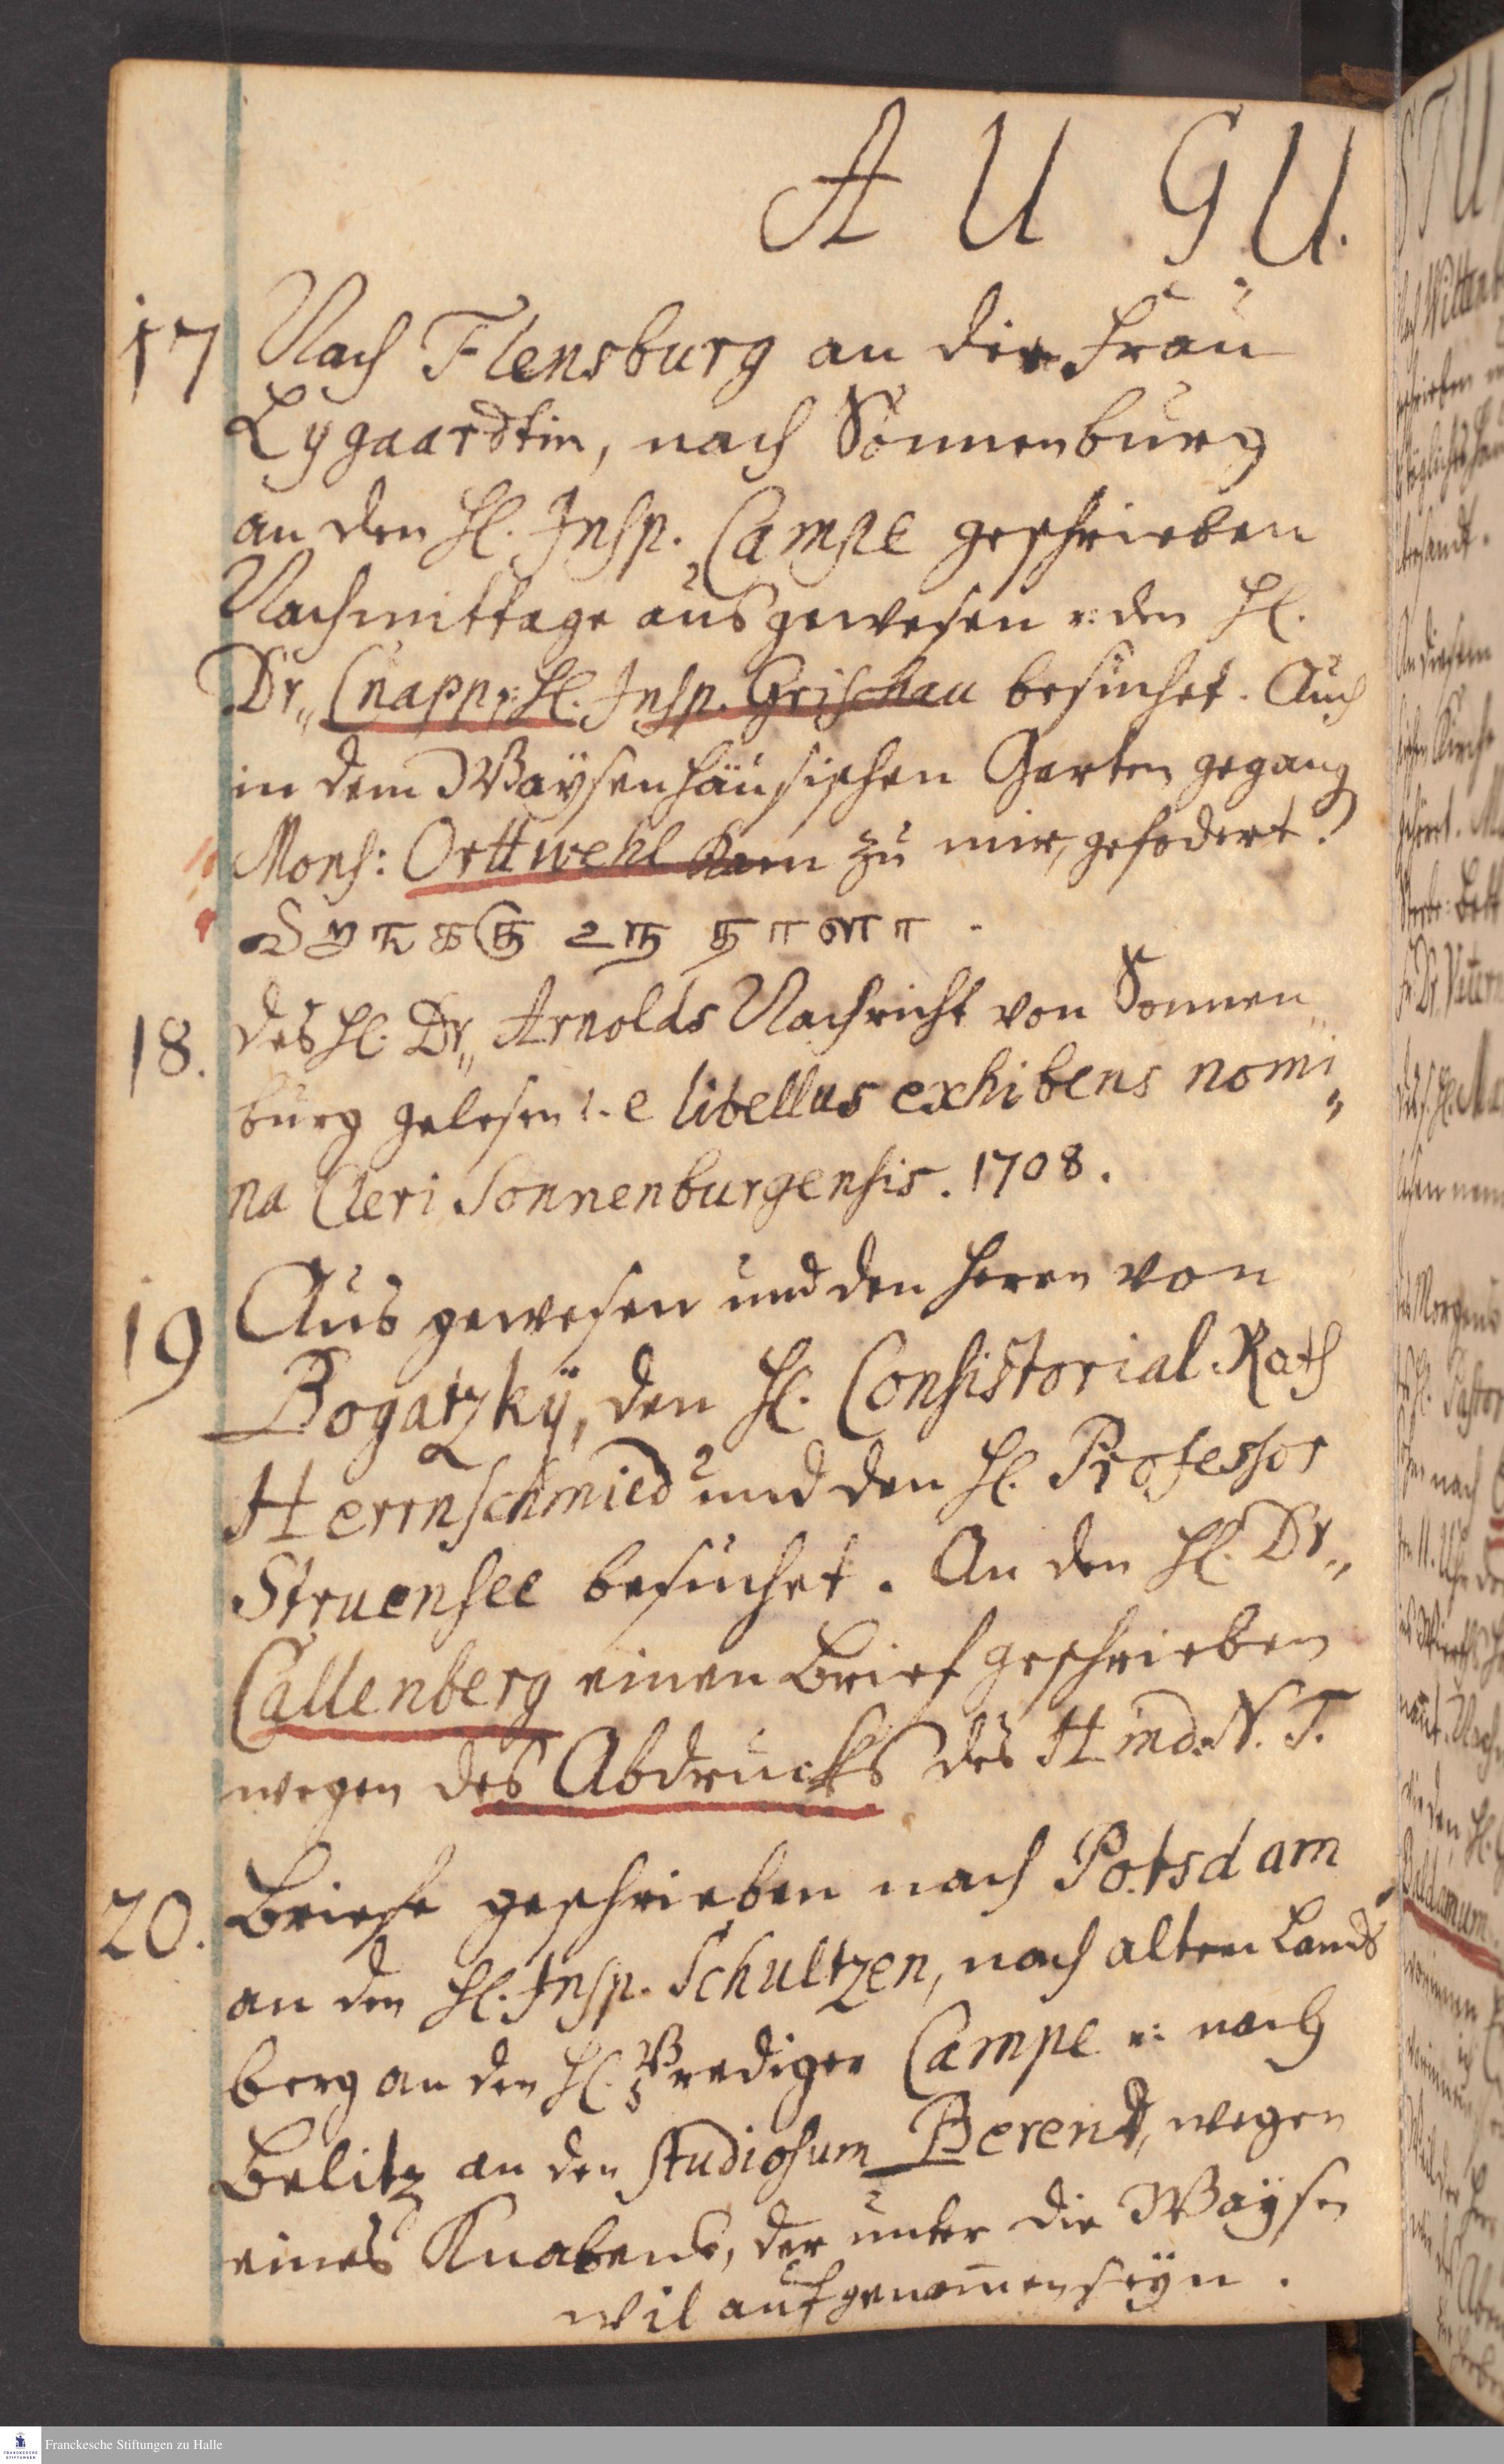 A U G U.
17 Nach Flensburg an die Frau
Lygaardtin, nach Sonnenburg
an den H. Insp. Campe geschrieben
Nachmittage ausgewesen u: den H.
Dr„ Cnapp, H. Insp. Grischau besuchet. Auch
in dem Waÿsenhäusischen Garten gegang
Mons: Orttwehl kam zu mir, gefodert.
18. des H. Dr„ Arnolds Nachricht von Sonnen„
burg gelesen i. e libellus exhibens nomi„
na Cleri Sonnenburgensis. 1708.
19 Aus gewesen und den Herrn von
Bogatzkÿ, den H. Consistorial-Rath
Herrnschmied und den H. Professor
Struensee besuchet. An den H. Dr„
Callenberg einen Brief geschrieben
wegen des Abdrucks des Hind. N. T.
20. Briefe geschrieben nach Potsdam
an den H. Insp. Schultzen, nach alten Lands
berg an den H. Prediger Campe u: nach
Belitz an den Studiosum Berend, wegen
eines Knabens, der unter die Waÿsen
wil aufgenomen seÿn.
Franckesche Stiftungen zu Halle